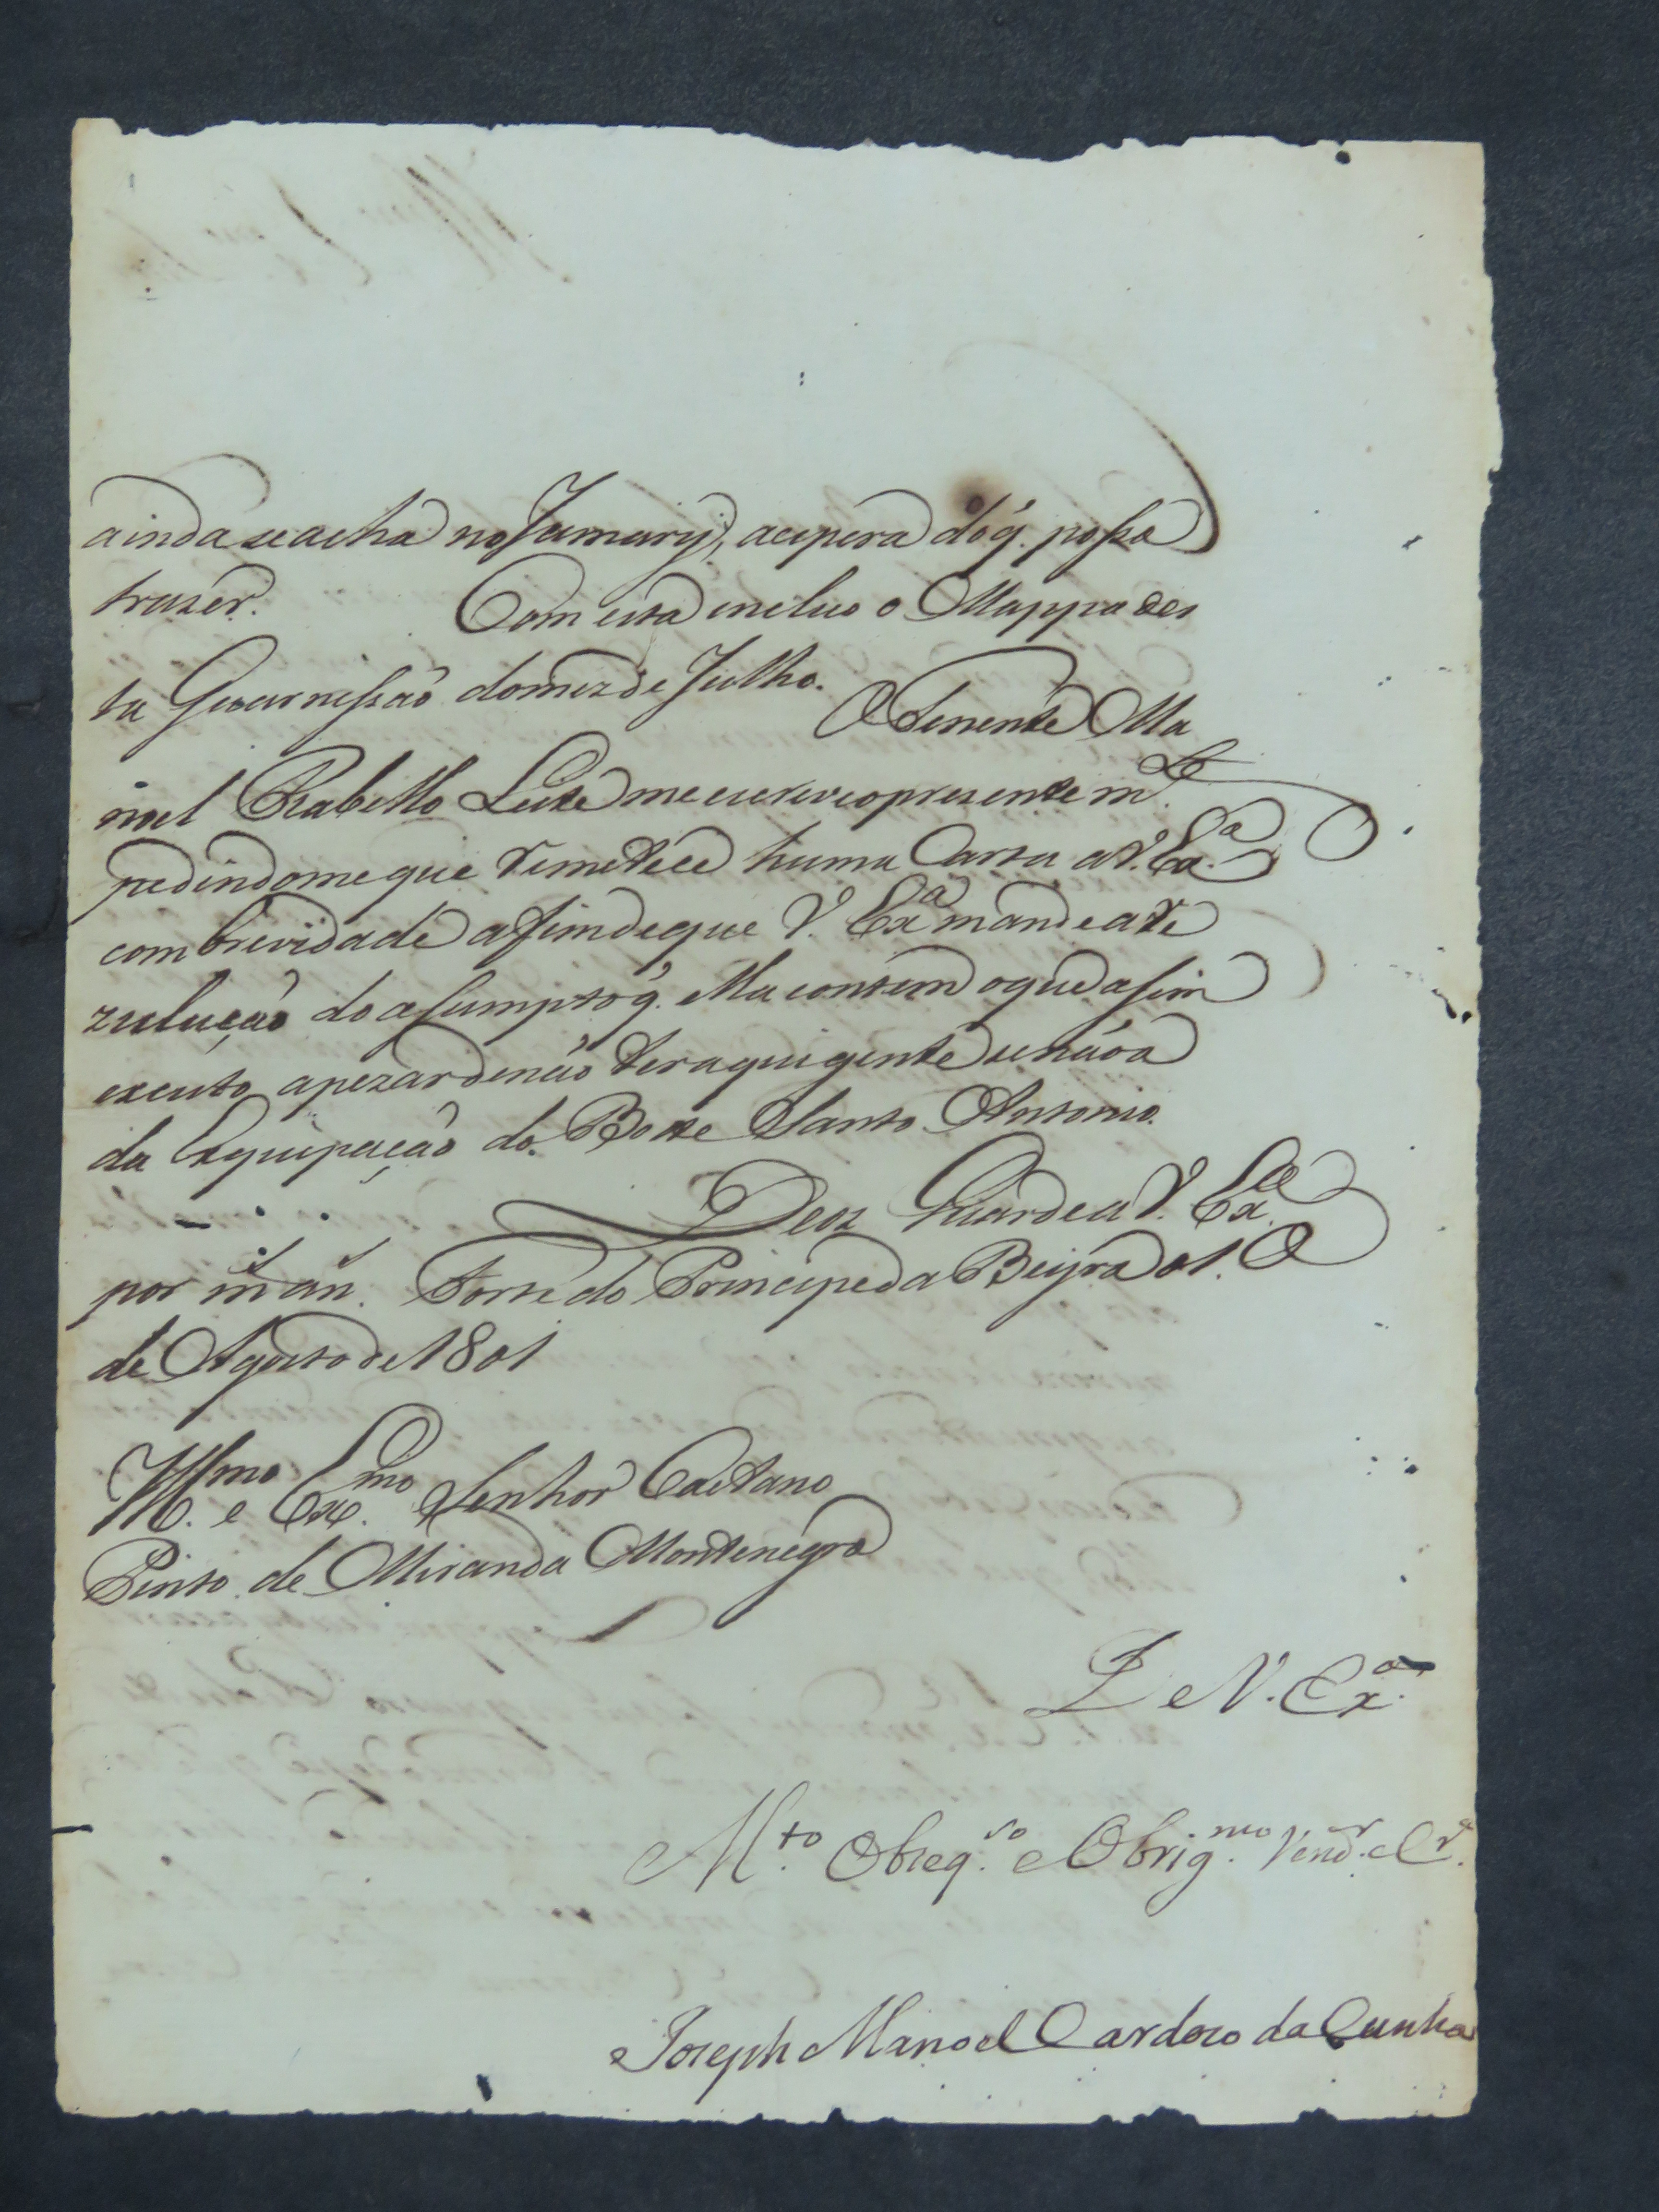 ainda se acha no Jamary, a espera do q. possa
trazer. Com esta incluo o Mappa des
ta Guarnissão do mez de Julho. O Tenente Ma
noel Rabello Leite me escreveo presente m.te
pedindome que remetece huma Carta a V. Ex.a
com brevidade a fim de que V. Ex.a mande a re
zulução do asumpto q. ella contem o que asim
exzuto apezar de não ter aqui gente senão a
da Equipação do Bote Santo Antonio.
Deoz Guarde a V. Ex.ca
por m.s an.s Forte do Principe da Beyra 01.
de Agosto de 1801
Ill.mo e Ex.mo Senhor Caetano
Pinto de Miranda Montenegro
De V. Ex.a
M.to Obzeq.zo e Obrig.mo Vend.or e Cr.o
Jozeph Manoel Cardozo da Cunha